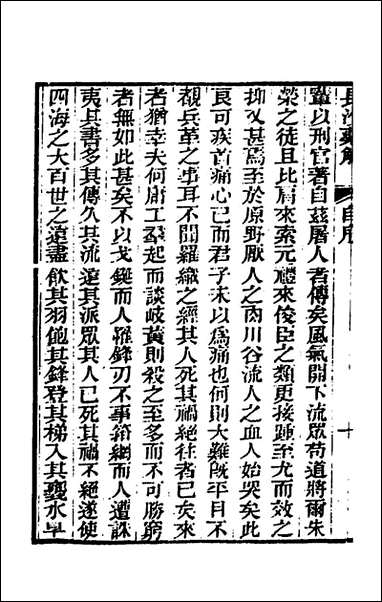 長沙藥解 自序
輩以刑官著自茲屠人者傳矣風氣開下流眾苟道將爾朱
榮之徒且比肩來索元禮來俊臣之類更接踵至尤而效之
抑又甚焉至於原野厭人之肉川谷流人之血人始哭矣此
良可疾首痛心已而君子未以為痛也何則大難既平目不
覩兵革之事耳不聞羅織之經其人死其禍絕往者已矣來
者猶幸夫何庸工羣起而談岐黃則殺之至多而不可勝窮
者無如此甚矣不以戈鋋而人罹鋒刃不事箝網而人遭誅
夷其書多其傳久其流遠其派眾其人已死其禍不絕遂使
四海之大百世之遠盡飲其羽飽其鋒登其梯入其甕水旱